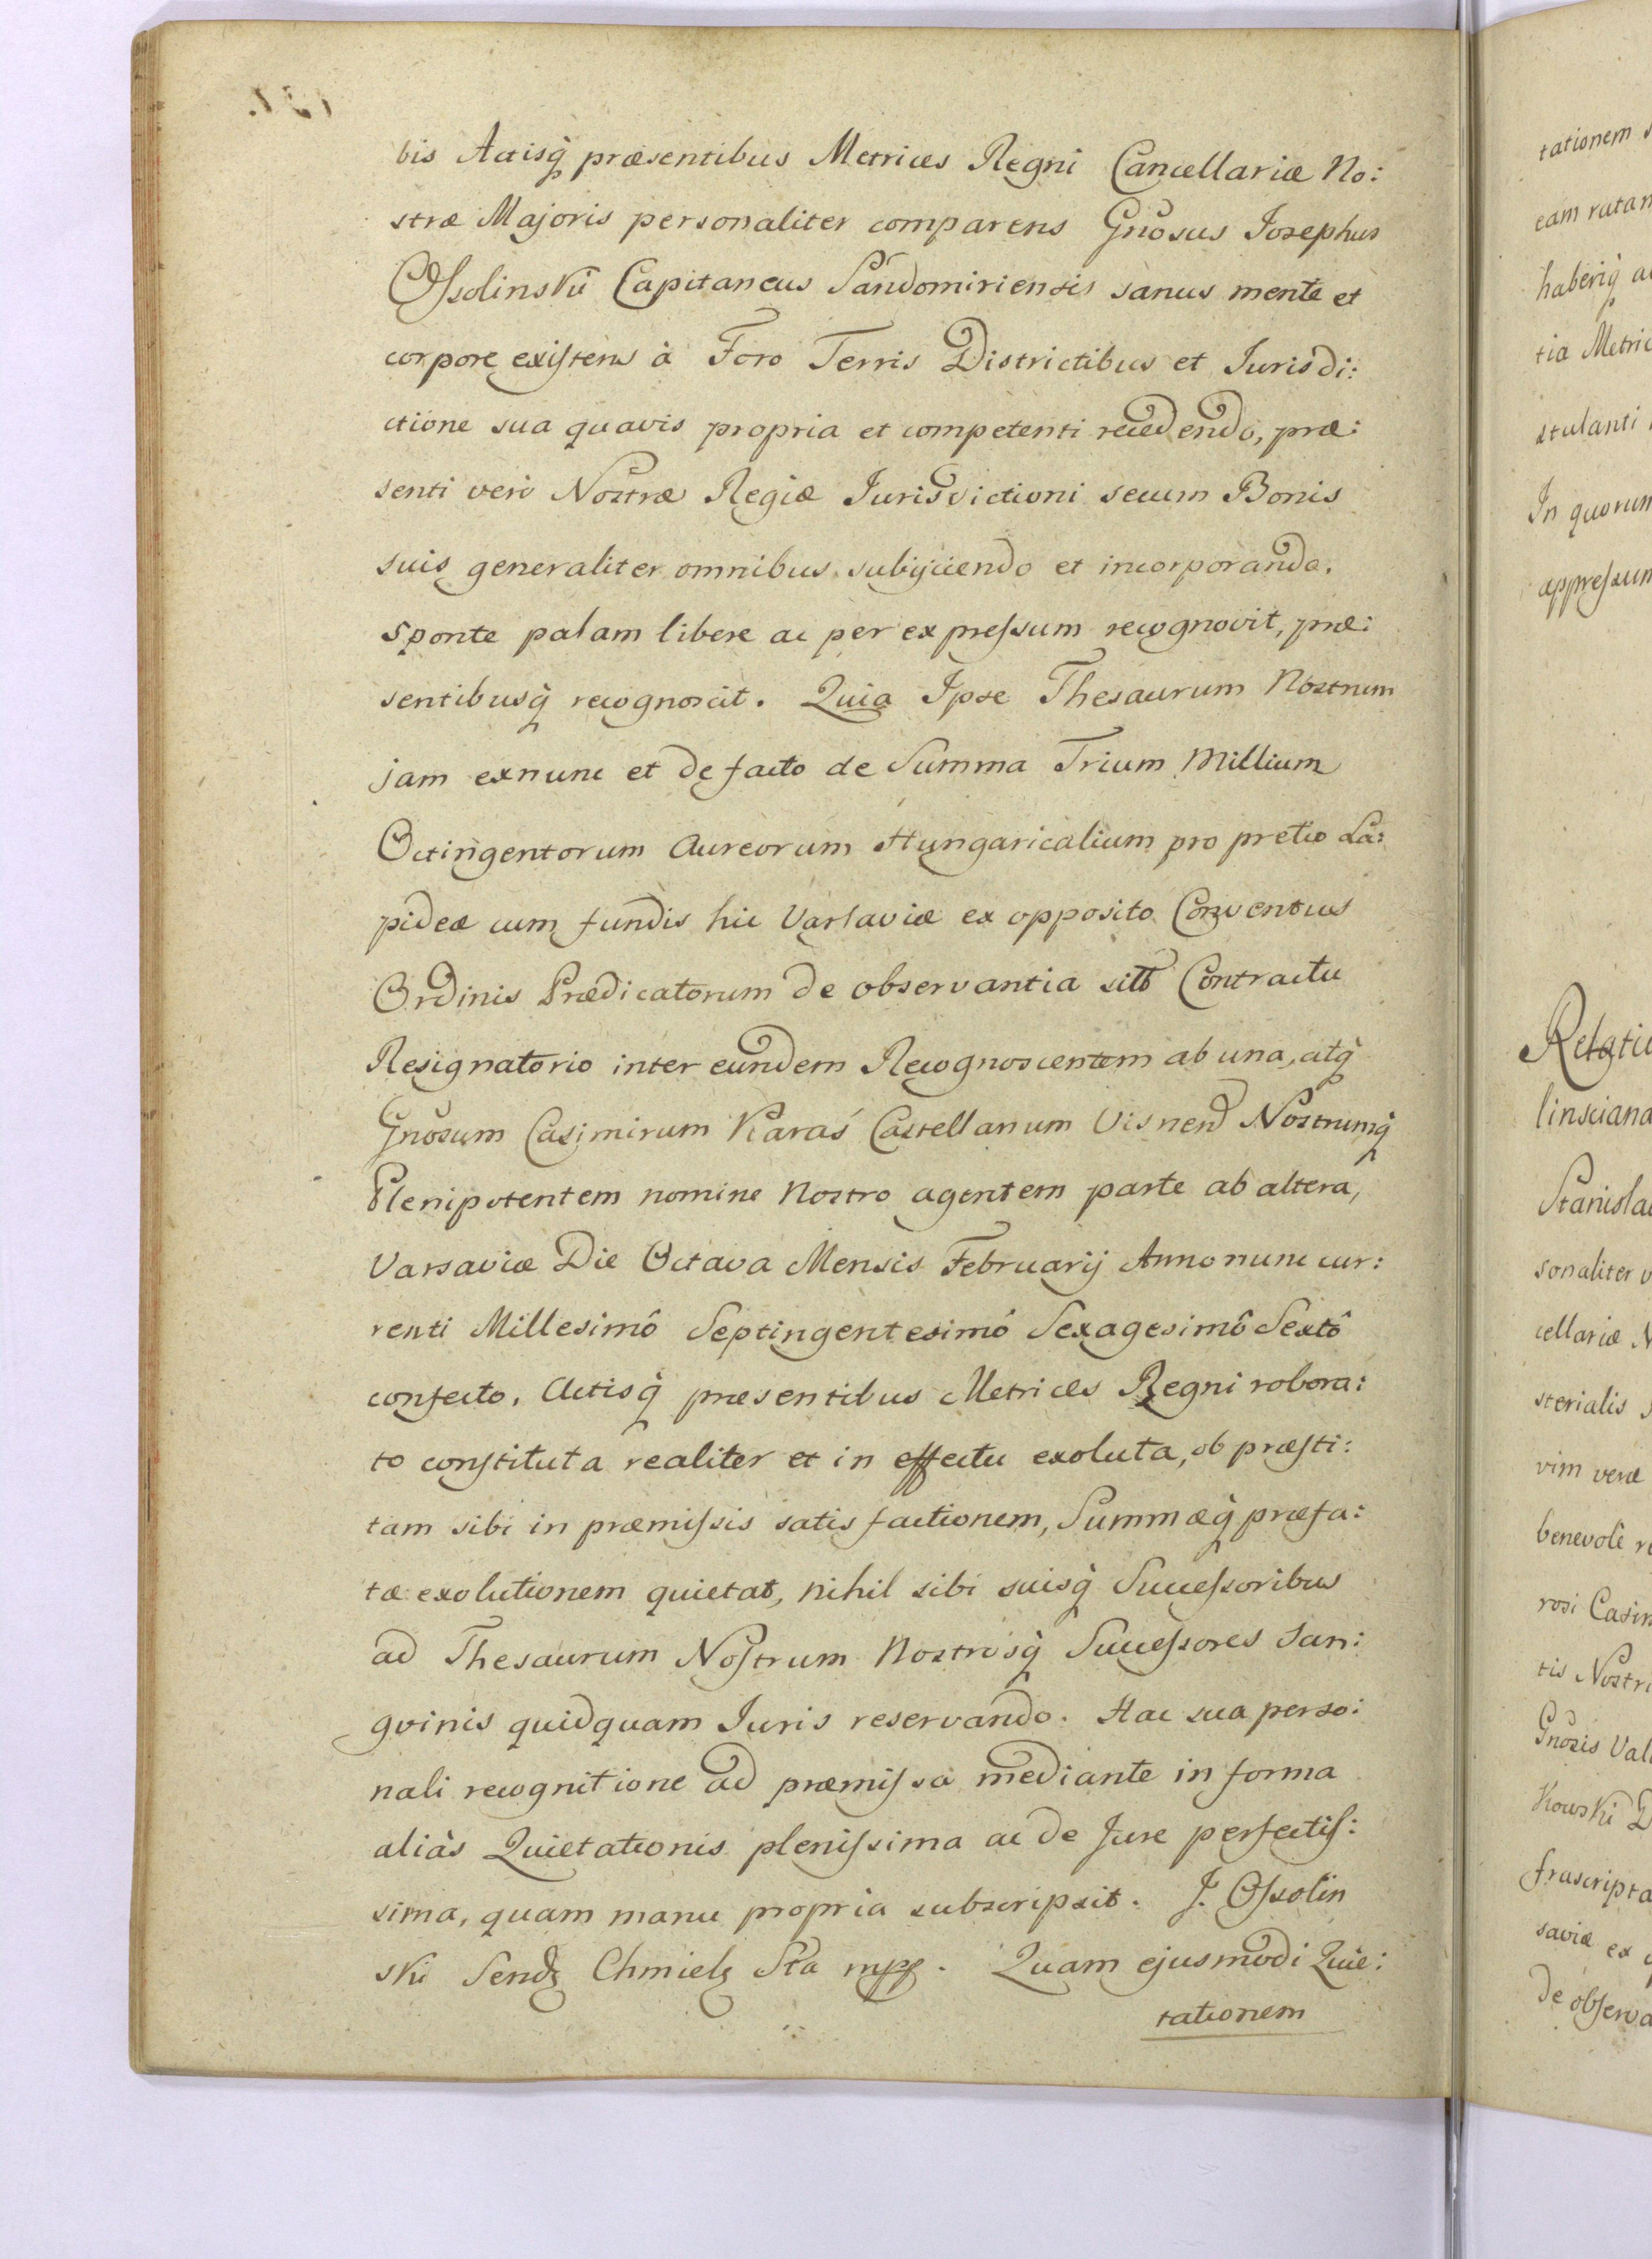 bis Actisq́ præsentibus Metrices Regni Cancellariæ No:
stræ Majoris personaliter comparens Gnosus Josephus
Ossolinski Capitaneus Sandomiriensis sanus mente et
corpore existens à Foro Terris Districtibus et Jurisdi:
ctione sua quavis propria et competenti recedendo, præ:
senti verò Nostræ Regiæ Jurisdictioni secum Bonis
suis generaliter omnibus subijciendo et incorporando.
sponte palam libere ac per expressum recognovit, præ:
sentibusq́ recognoscit. Quia Ipse Thesaurum Nostrum
jam exnunc et de facto de Summa Trium Millium
Octingentorum Aureorum Hungaricalium pro pretio La:
pideæ cum fundis hic Varsaviæ ex opposito Conventus
Ordinis Prædicatorum de observantia sitæ Contractu
Resignatorio inter eundem Recognoscentem ab una, atq́
Gnosum Casimirum Karaś Castellanum Visnen Nostrumq́
Plenipotentem nomine Nostro agentem parte ab altera,
Varsaviæ Die Octava Mensis Februarij Anno nunc cur:
renti Millesimô Septingentesimô Sexagesimô Sextô
confecto, Actisq́ præsentibus Metrices Regni robora:
to constituta realiter et in effectu exoluta, ob præsti:
tam sibi in præmissis satisfactionem, Summæq́ præfa:
tæ exolutionem quietat, nihil sibi suisq́ Successoribus
ad Thesaurum Nostrum Nostrosq́ Successores San:
gvinis quidquam Juris reservando. Hac sua perso:
nali recognitione ad præmissa mediante in forma
aliàs Quietationis plenissima ac de Jure perfectis:
sima, quam manu propria subscripsit. J. Ossolin
ski Sendz Chmielz Sta mpp. Quam ejusmodi Quie:
tationem
tationem
eam
haberiq́
tia Metric
stulanti
In quorum
appressum
Relatio
linsciana
Stanisla
sonaliter
cellariæ N
sterialis
vim veræ
benevolè
rosi Casim
tis Nostri
Gnosis Val
kowski
frascripta
saviæ ex
de observa